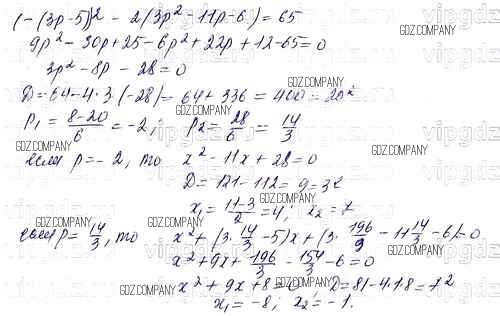 (-(3p-5))² - 2(3p² - 11p - 6) = 65
9p² - 30p + 25 - 6p² + 22p + 12 - 65 = 0
3p² - 8p - 28 = 0
D = 64 - 4·3·(-28) = 64 + 336 = 400 = 20²
p₁ = (8-20)/6 = -2; p₂ = 28/6 = 14/3
если p = -2, то x² - 11x + 28 = 0
D = 121 - 112 = 9 = 3²
x₁ = (11-3)/2 = 4; x₂ = 7
если p = 14/3, то x² + (3·14/3 - 5)x + (3·196/9 - 11·14/3 - 6) = 0
x² + 9x + 196/3 - 154/3 - 6 = 0
x² + 9x + 8 = 0 D = 81 - 4·1·8 = 7²
x₁ = -8; x₂ = -1.
GDZ.COMPANY
GDZ.COMPANY
GDZ.COMPANY
GDZ.COMPANY
GDZ.COMPANY
GDZ.COMPANY
GDZ.COMPANY
GDZ.COMPANY
GDZ.COMPANY
GDZ.COMPANY
GDZ.COMPANY
GDZ.COMPANY